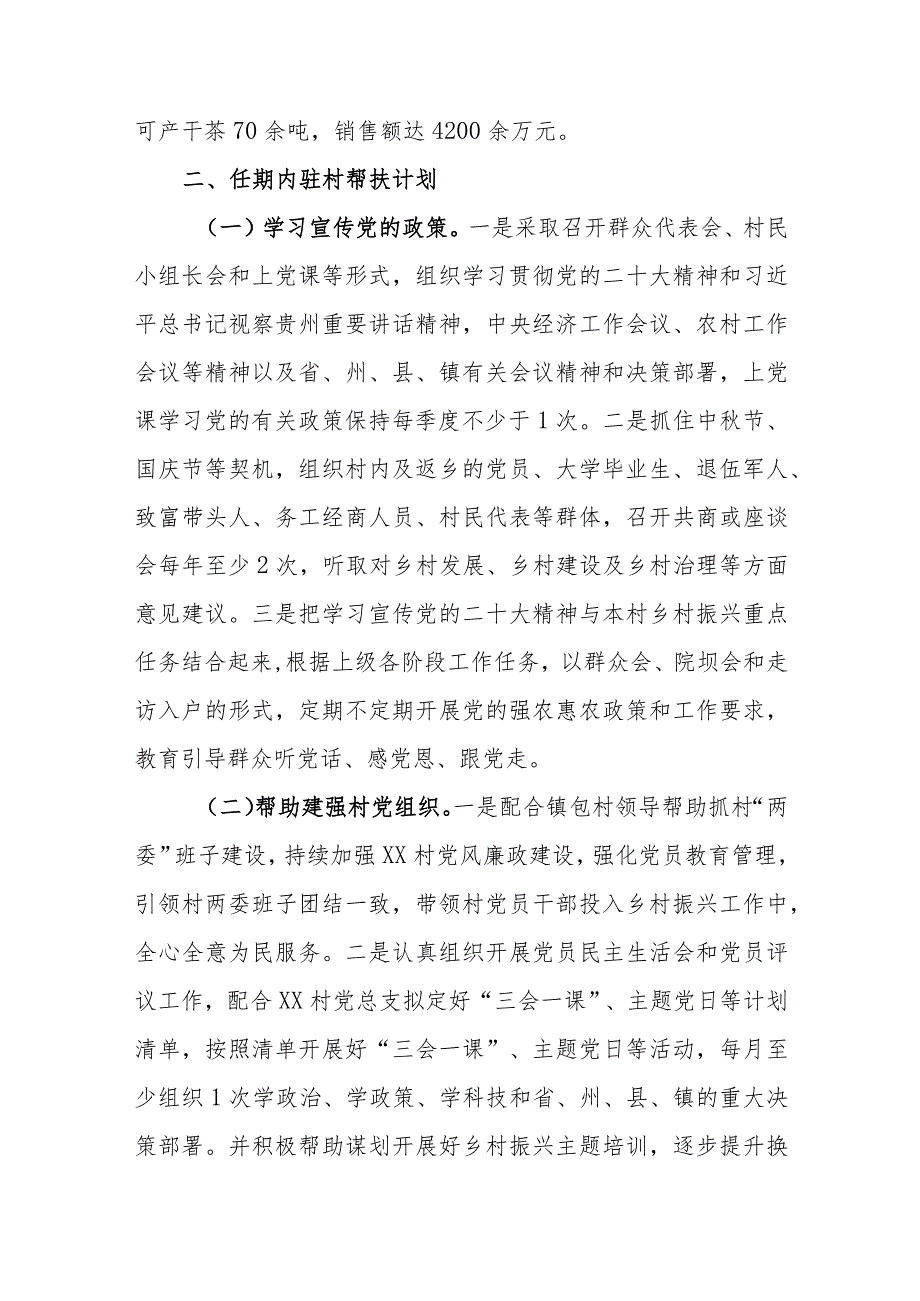 可产干茶 70 余吨，销售额达 4200 余万元。
二、任期内驻村帮扶计划
（一）学习宣传党的政策。一是采取召开群众代表会、村民
小组长会和上党课等形式，组织学习贯彻党的二十大精神和习近
平总书记视察贵州重要讲话精神，中央经济工作会议、农村工作
会议等精神以及省、州、县、镇有关会议精神和决策部署，上党
课学习党的有关政策保持每季度不少于 1 次。二是抓住中秋节、
国庆节等契机，组织村内及返乡的党员、大学毕业生、退伍军人、
致富带头人、务工经商人员、村民代表等群体，召开共商或座谈
会每年至少 2 次，听取对乡村发展、乡村建设及乡村治理等方面
意见建议。三是把学习宣传党的二十大精神与本村乡村振兴重点
任务结合起来,根据上级各阶段工作任务，以群众会、院坝会和走
访入户的形式，定期不定期开展党的强农惠农政策和工作要求，
教育引导群众听党话、感党恩、跟党走。
（二）帮助建强村党组织。一是配合镇包村领导帮助抓村“两
委”班子建设，持续加强 XX 村党风廉政建设，强化党员教育管理，
引领村两委班子团结一致，带领村党员干部投入乡村振兴工作中，
全心全意为民服务。二是认真组织开展党员民主生活会和党员评
议工作，配合 XX 村党总支拟定好“三会一课”、主题党日等计划
清单，按照清单开展好“三会一课”、主题党日等活动，每月至
少组织 1 次学政治、学政策、学科技和省、州、县、镇的重大决
策部署。并积极帮助谋划开展好乡村振兴主题培训，逐步提升换